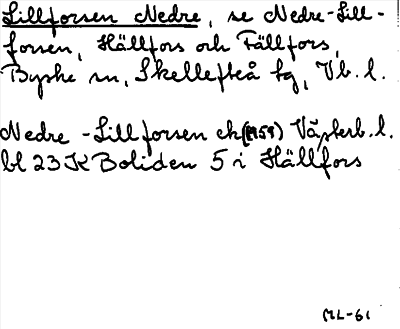 Lillforsen Nedre, se Nedre-Lill-
forsen, Hällfors och Fällfors,
Byske sn, Skellefteå tg, Vb. l.
Nedre - Lillforsen ek (1959) Västerb. l.
bl 23 K Boliden 5 i Hällfors
ML-61